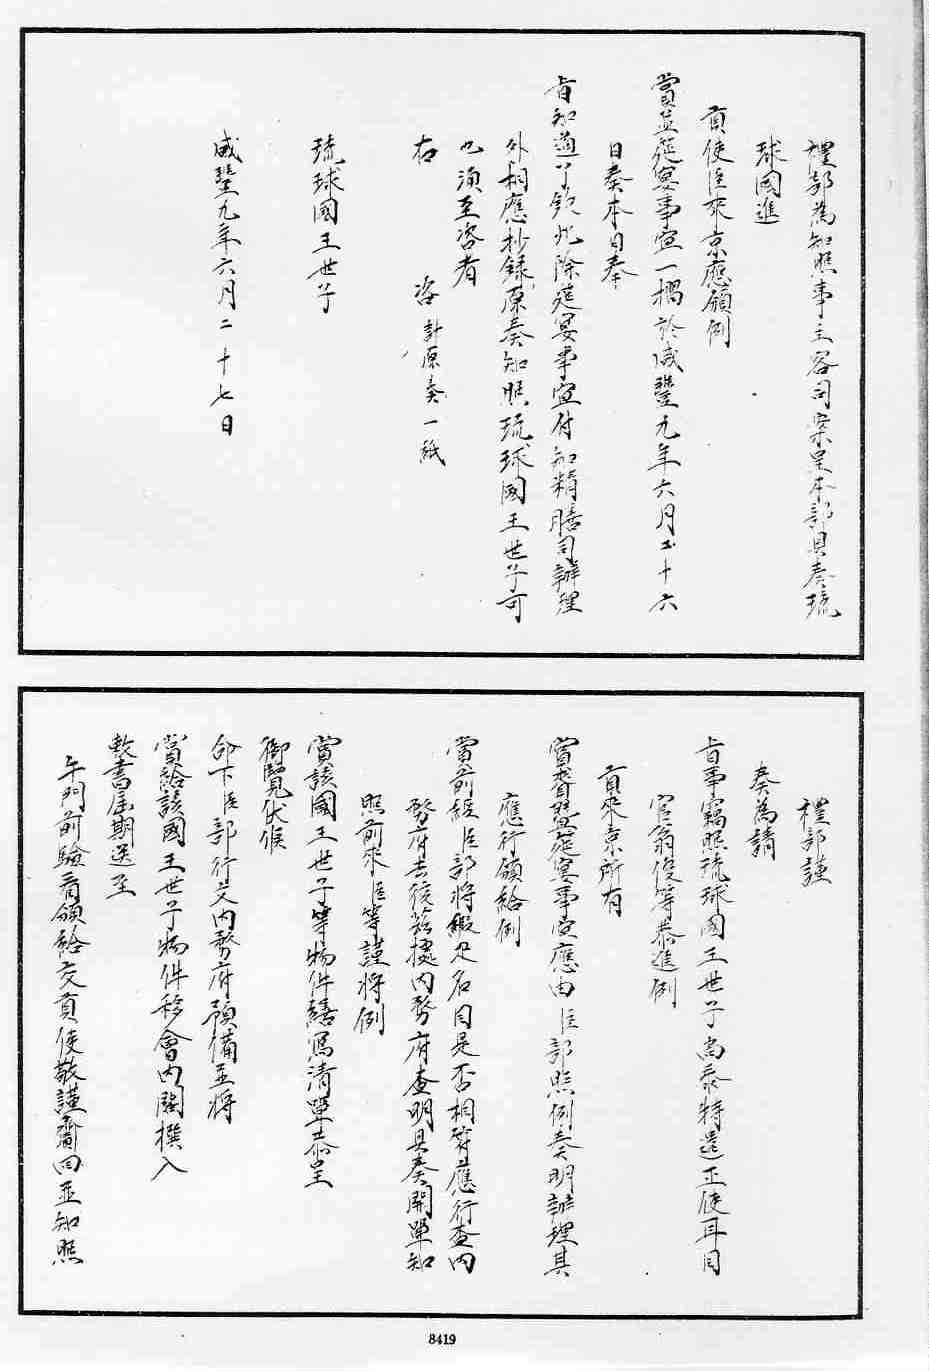 禮部為知照事主客司案呈本部具奏琉
球國進
貢使臣來京應頒例
賞並筵宴事宜一摺於咸豐九年六月二十六
日奏本日奉
旨知道了欽此除筵宴事宜付知精膳司辦理
外相應抄錄原奏知照琉球國王世子可
也須至咨者
右　咨 計原奏一紙
琉球國王世子
咸豐九年六月二十七日
禮部謹
奏為請
旨事竊照琉球國王世子尚泰特遣正使耳目
官翁俊等恭進例
貢來京所有
賞賚暨筵宴事宜應由臣部照例奏明辦理其
應行頒給例
賞前經臣部將緞疋名目是否相符應行查內
務府去後茲據內務府查明具奏開單知
照前來臣等謹將例
賞該國王世子等物件繕寫清單恭呈
御覽伏候
命下臣部行文內務府預備並將
賞給該國王世子物件移會內閣撰入
敕書屆期送至
午門前驗看頒給交貢使敬謹齎回並知照
8419